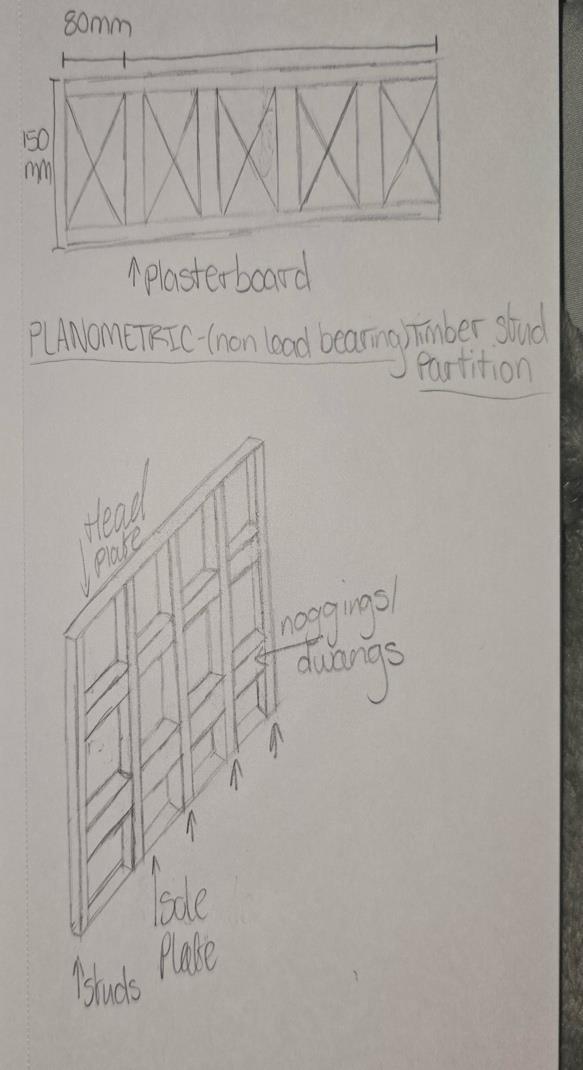 80mm
150
mm
↑plasterboard
PLANOMETRIC-(non load bearing)Timber stud
Partition
Head
plate
noggings/
dwangs
Sole
Plate
studs